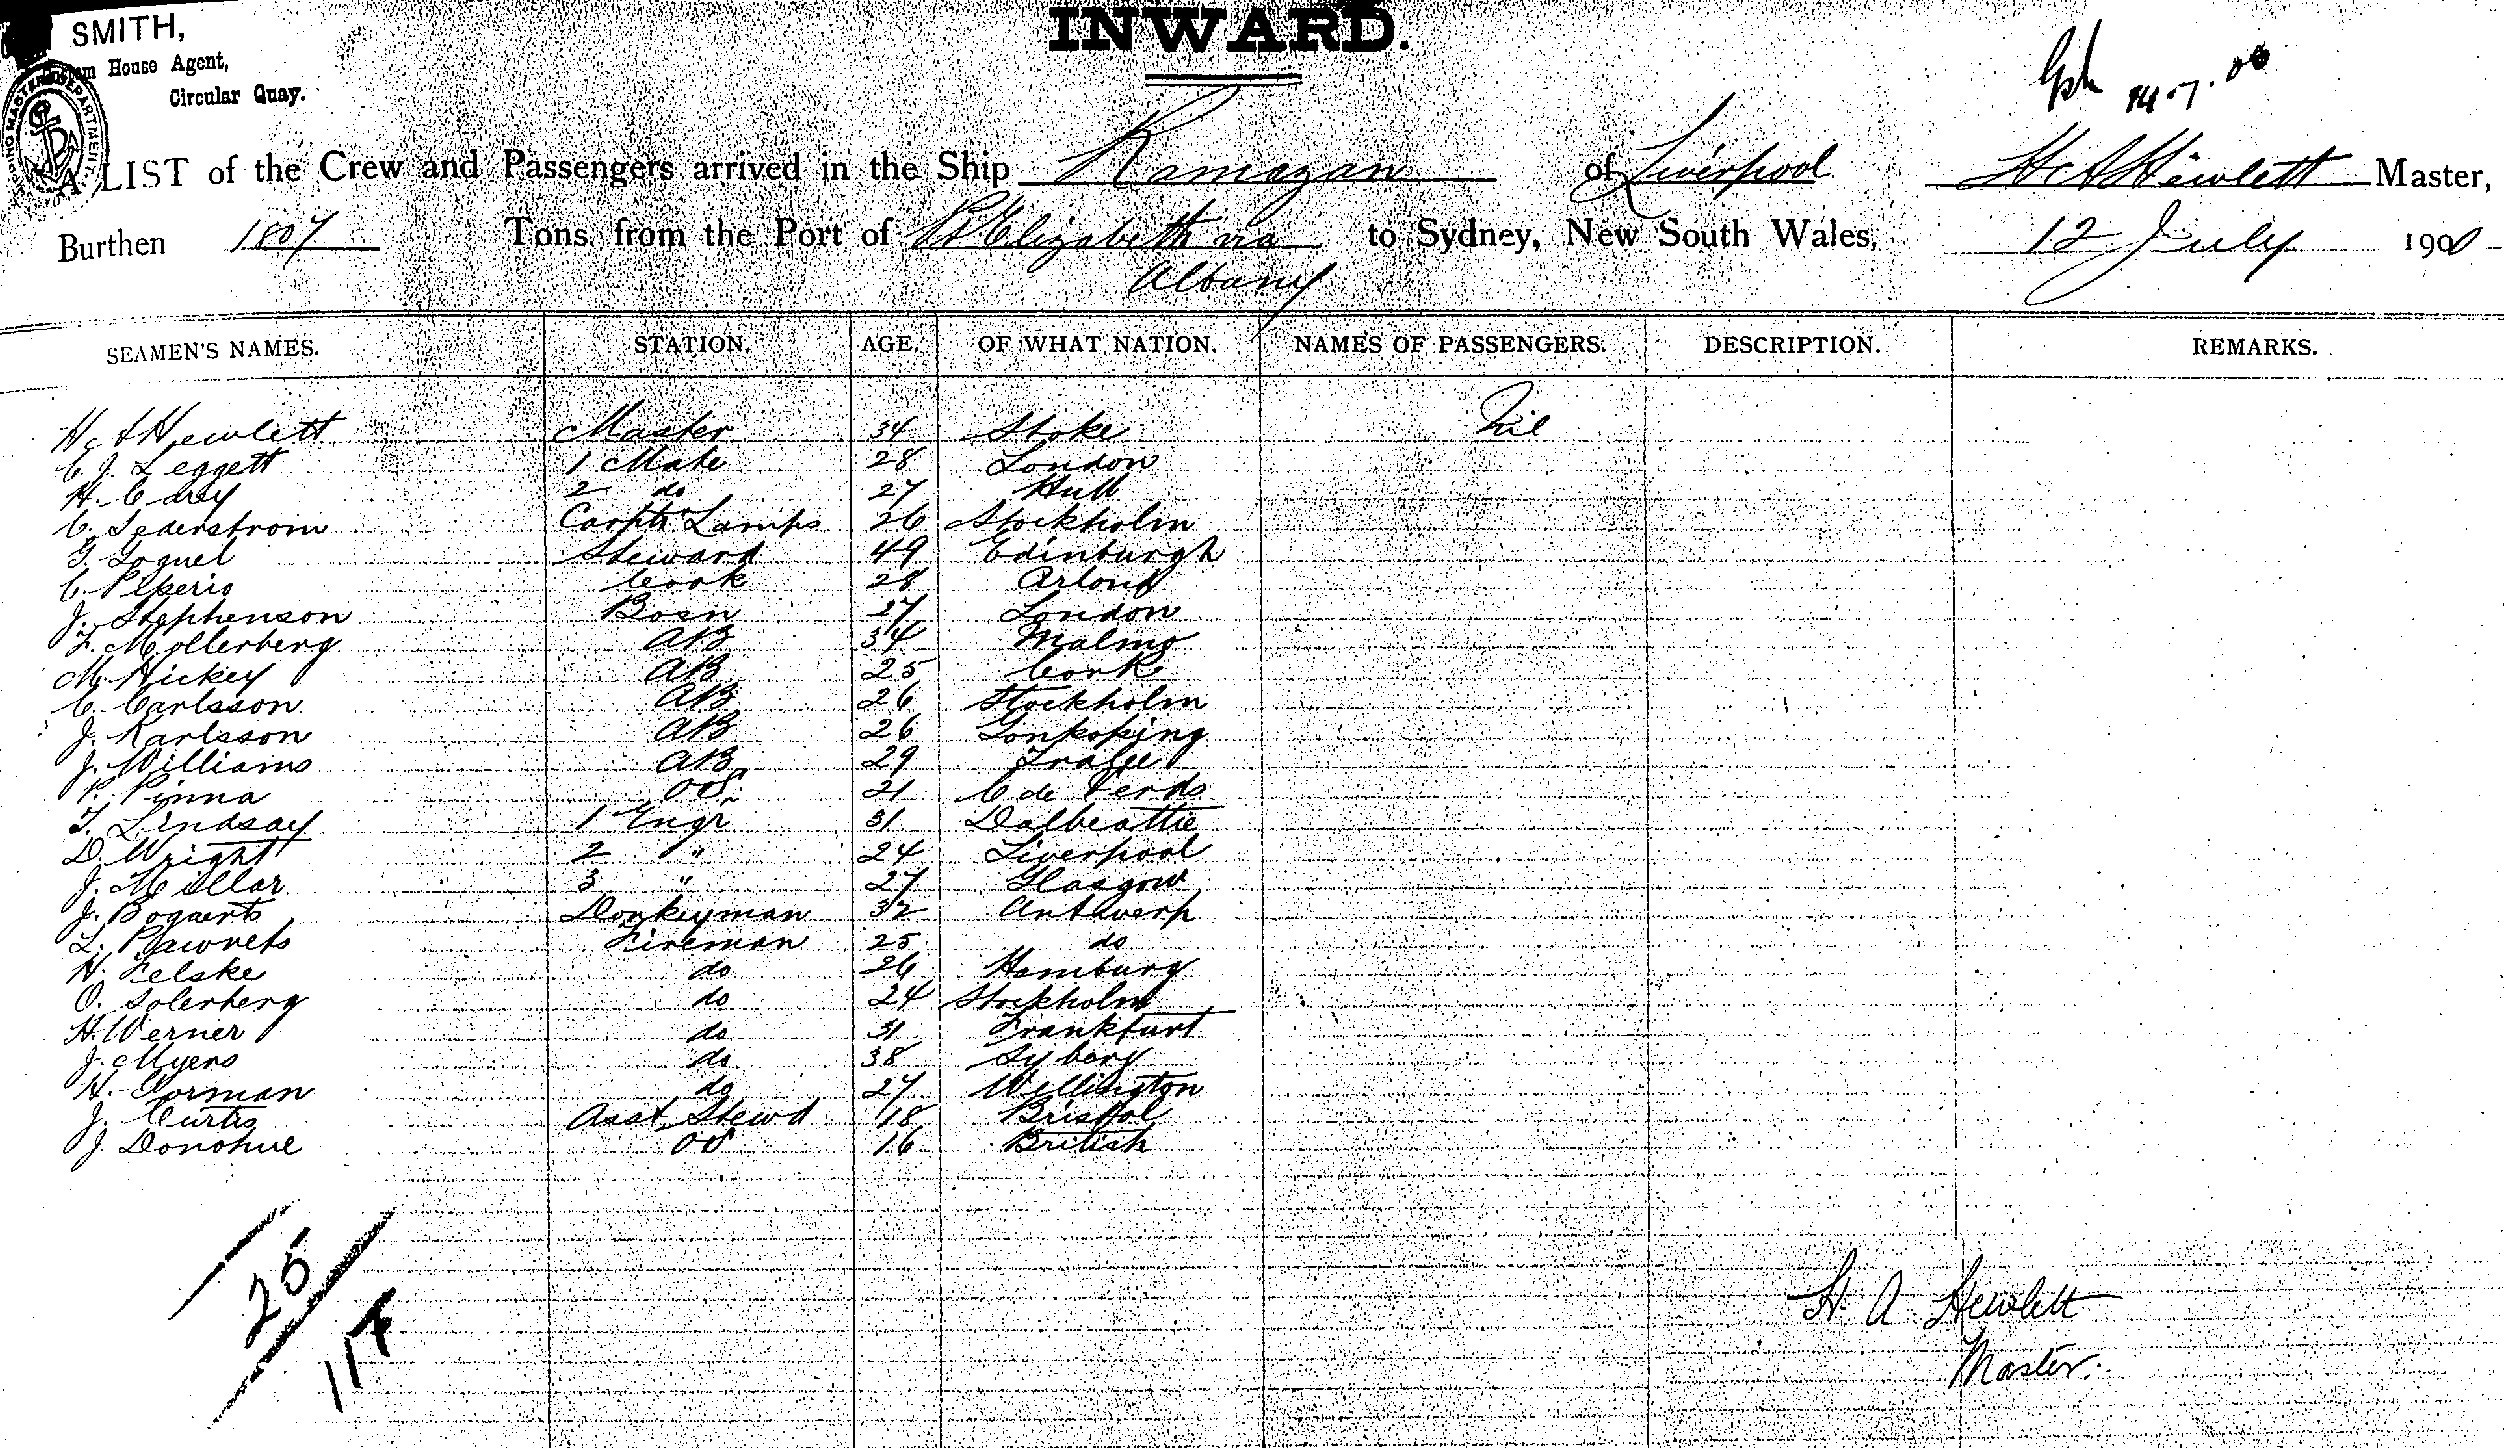 INWARD.
SMITH,
House Agent,
Circular Quay.
14.7.00
A LIST of the Crew and Passengers arrived in the Ship Ramazan of Liverpool H A Hewlett Master,
Burthen 1807 Tons, from the Port of Pt Elizabeth via to Sydney, New South Wales, 12 July 1900
Albany
SEAMEN'S NAMES. STATION. AGE. OF WHAT NATION. NAMES OF PASSENGERS. DESCRIPTION. REMARKS.
H A Hewlett Master 34 Stoke Nil
C. J. Leggett 1 Mate 28 London
H. Cary 2 do 27 Hull
C. Sederstrom Carptr Lamps 26 Stockholm
G. Soguel Steward 49 Edinburgh
C. Peperio Cook 28
J. Stephenson Bosn 27 London
F. Mollerberg AB 34 Malmo
M. Hickey AB 25 Cork
C. Carlsson AB 26 Stockholm
J. Karlsson AB 26 Jonkoping
J. Williams AB 29 Tralee
P. Pinna OS 21 C de Verds
T. Lindsay 1 Engr 31 Dalbeattie
D. Wright 2 " 24 Liverpool
J. Millar 3 " 27 Glasgow
J. Bogaerts Donkeyman 32 Antwerp
L. Pawnets Fireman 25 do
H. Felske do 26 Hamburg
O. Solerberg do 24 Stockholm
H. Werner do 31 Frankfurt
J. Myers do 38 Syborg
H. Gorman do 27 Wellington
J. Curtis Asst Stewd 18 Bristol
J. Donohue OS 16 British
25
117
H. A Hewlett
Master.